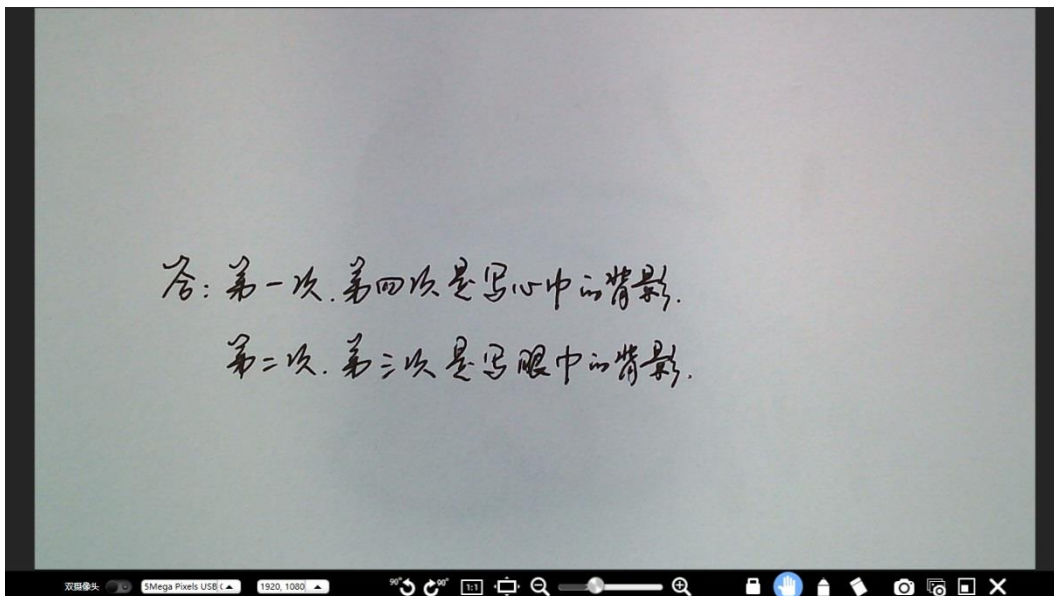 答:第一次.第四次是写心中的背影.
第二次.第三次是写眼中的背影.
双摄像头
5Mega Pixels USB C
1920, 1080
90°
90°
1:1